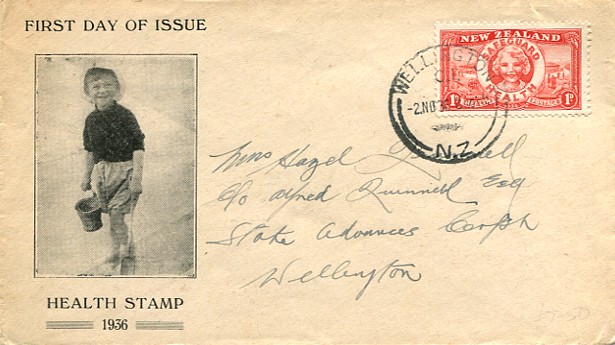 FIRST DAY OF ISSUE
NEW ZEALAND
SAFEGUARD
HEALTH
1D POSTAGE 1D
WELLINGTON
N.Z.
Hazel
C/o Alfred Quinnell Esq
State Advances Corpn
Wellington
HEALTH STAMP
1936